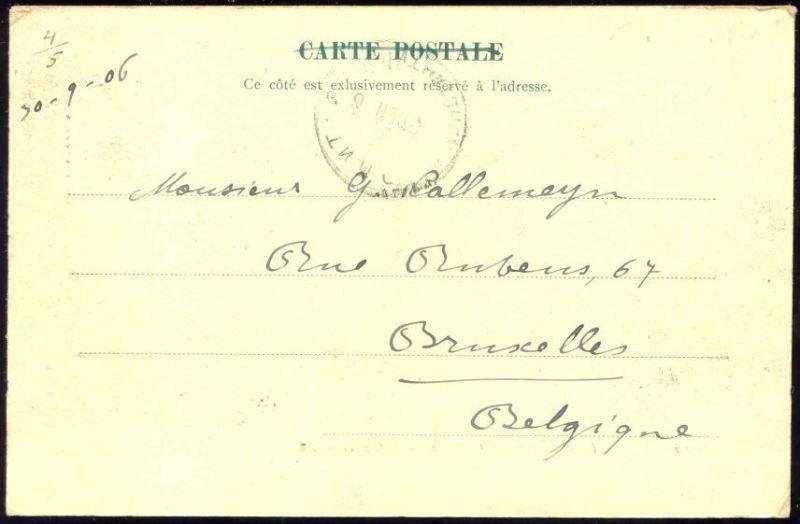 4/5
30-9-06
CARTE POSTALE
Ce côté est exlusivement réservé à l'adresse.
Monsieur G. Callemeyn
Rue Rubens, 67
Bruxelles
Belgique